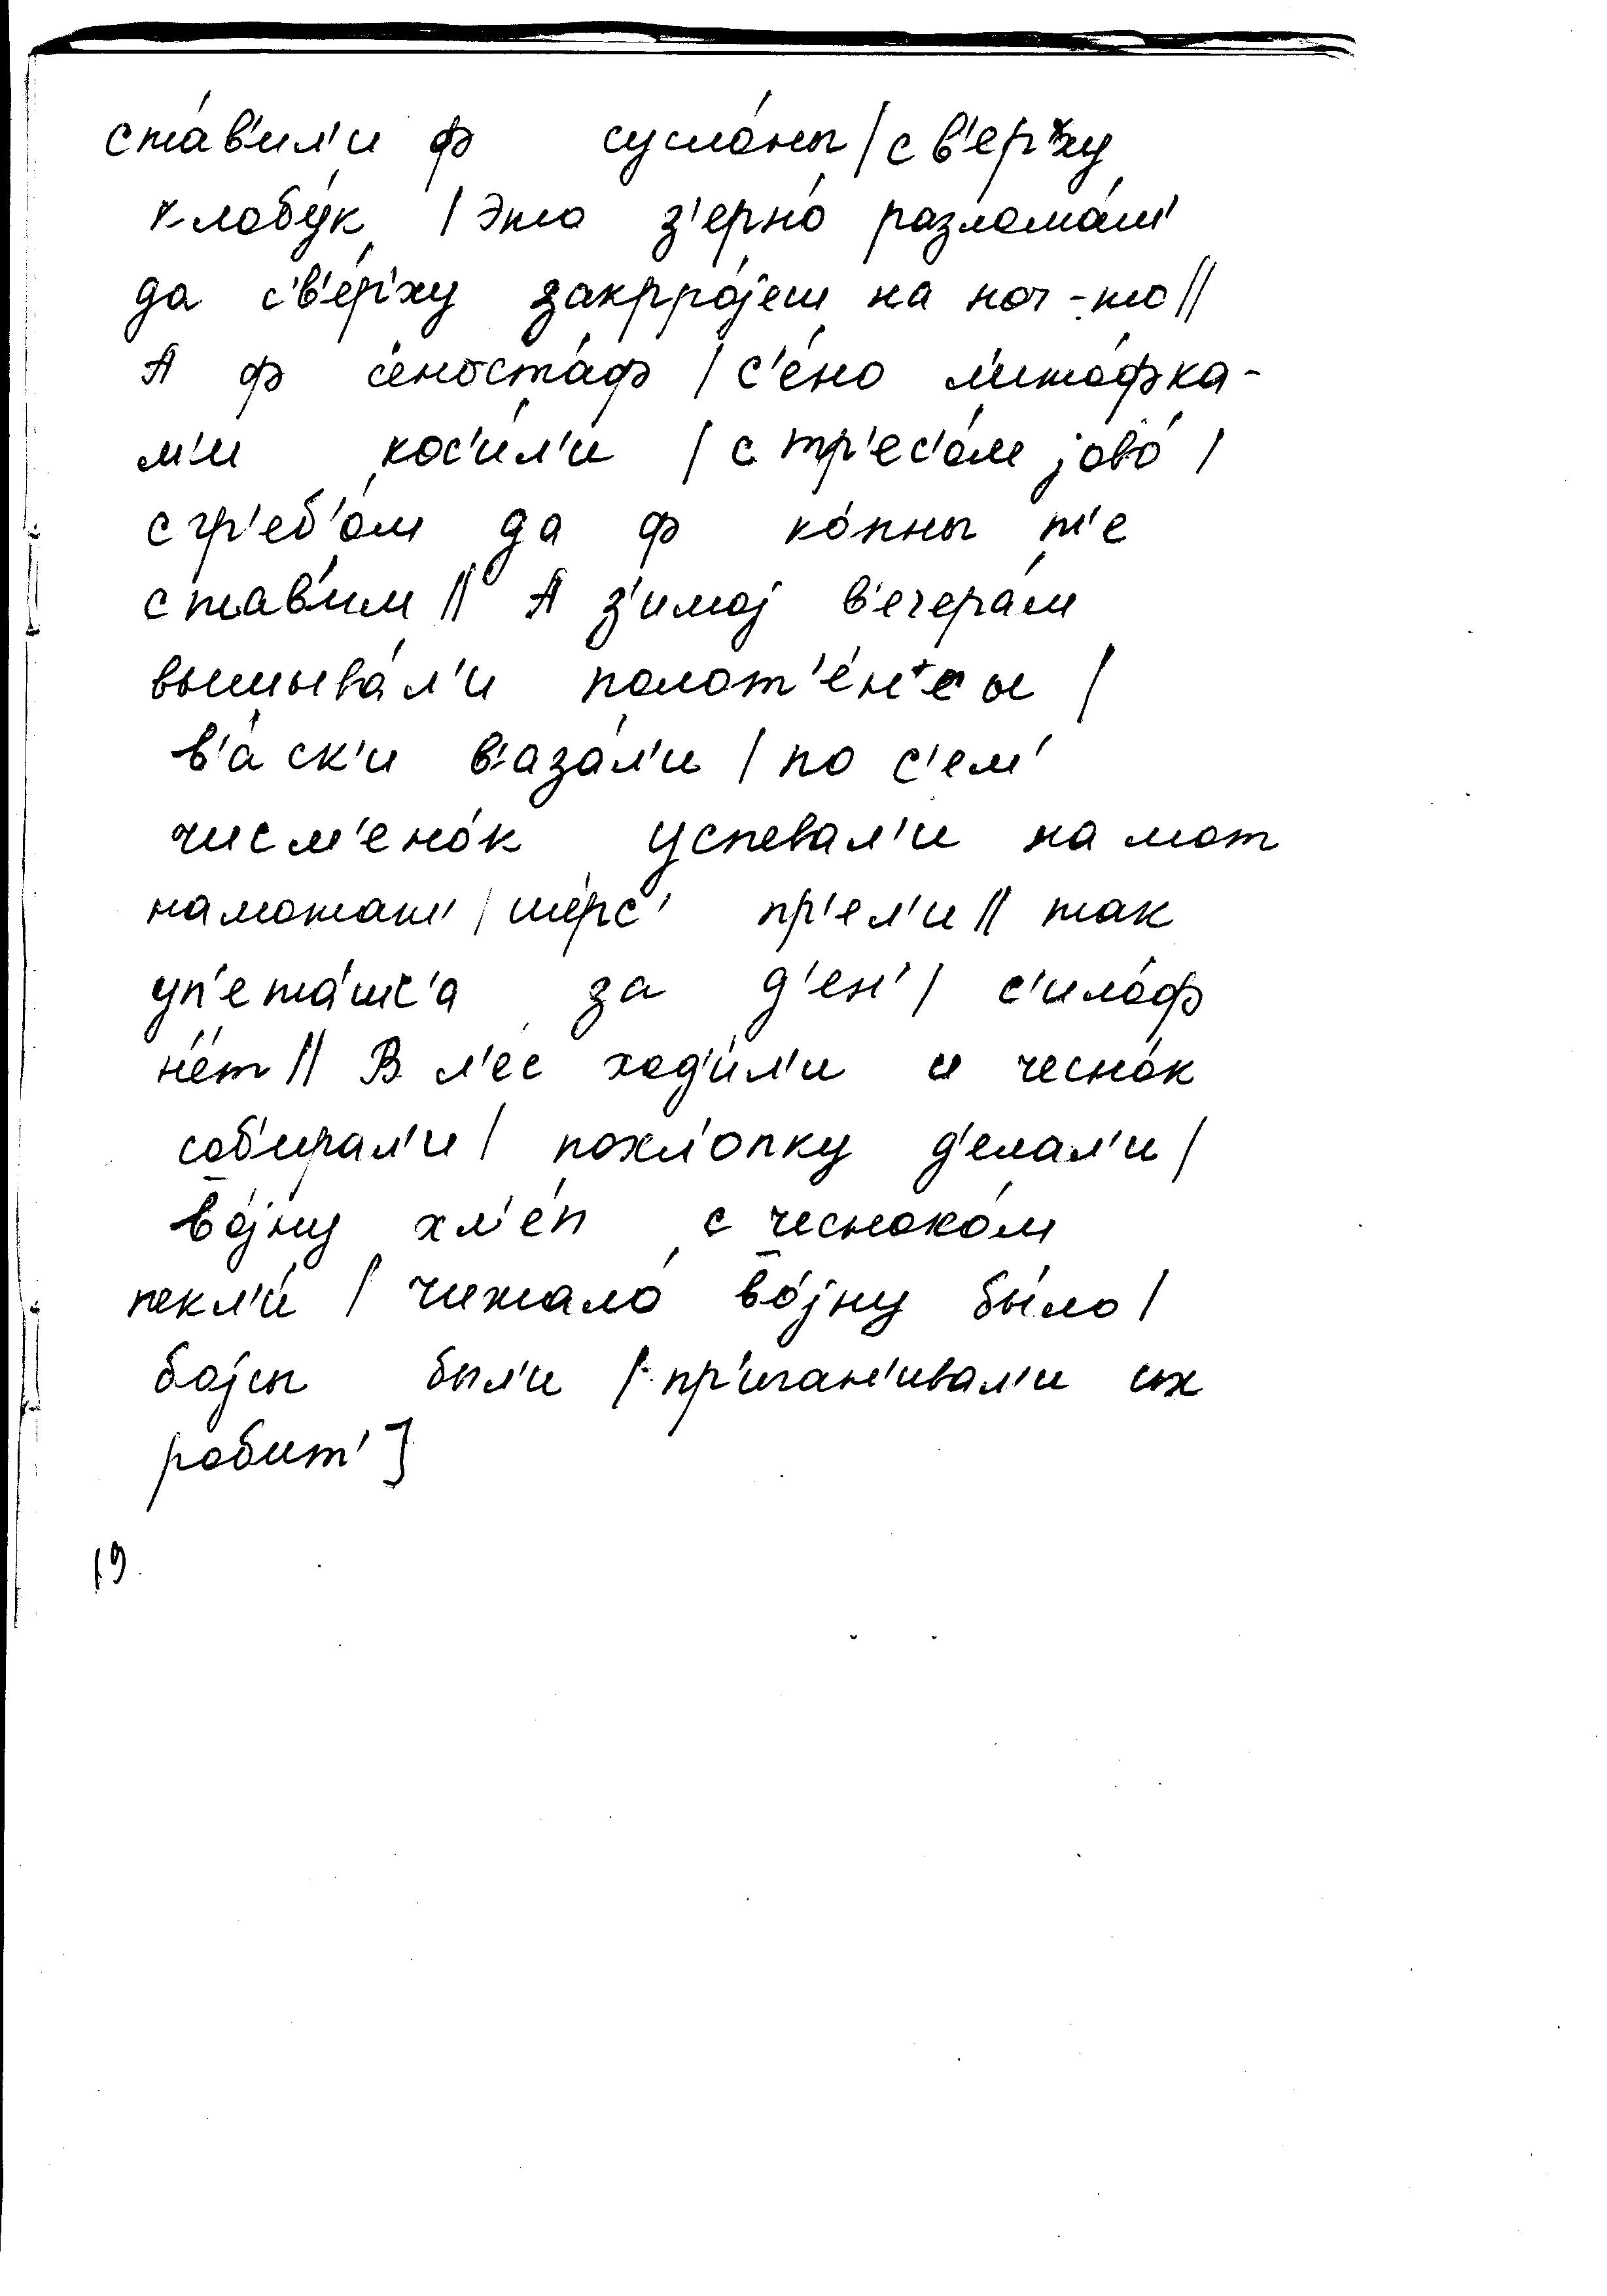 ста́в'ил'и ф сусло́ны | с в'ерху
клобу́к | Это з'ерно́ разлома́ш'
да с'в'е́р'ху закрро́јеш на ноч-то ||
А ф с'еноста́ф | с'е́но л'ито́фка-
м'и кос'и́л'и | с тр'ес'о́м јово́ |
сгр'еб'о́м да ф ко́пны т'е
став'им || А з'имој в'ечера́м
вышыва́л'и полот'е́н'сы |
в'а́ск'и в'аза́л'и | по с'ем'
числ'ено́к успевал'и на мот
намотат' | ше́рс' пр'ел'и || так
уп'ета́шс'а за д'ен' | с'ило́ф
н'е́т || В л'е́с ход'и́л'и и чесно́к
соб'ирал'и | похл'о́пку д'елал'и |
во́јну хл'е́п с чесноко́м
пекл'и́ | чижало́ во́јну бы́ло |
бојсы был'и | пр'иган'ивал'и их
робит' ]
19